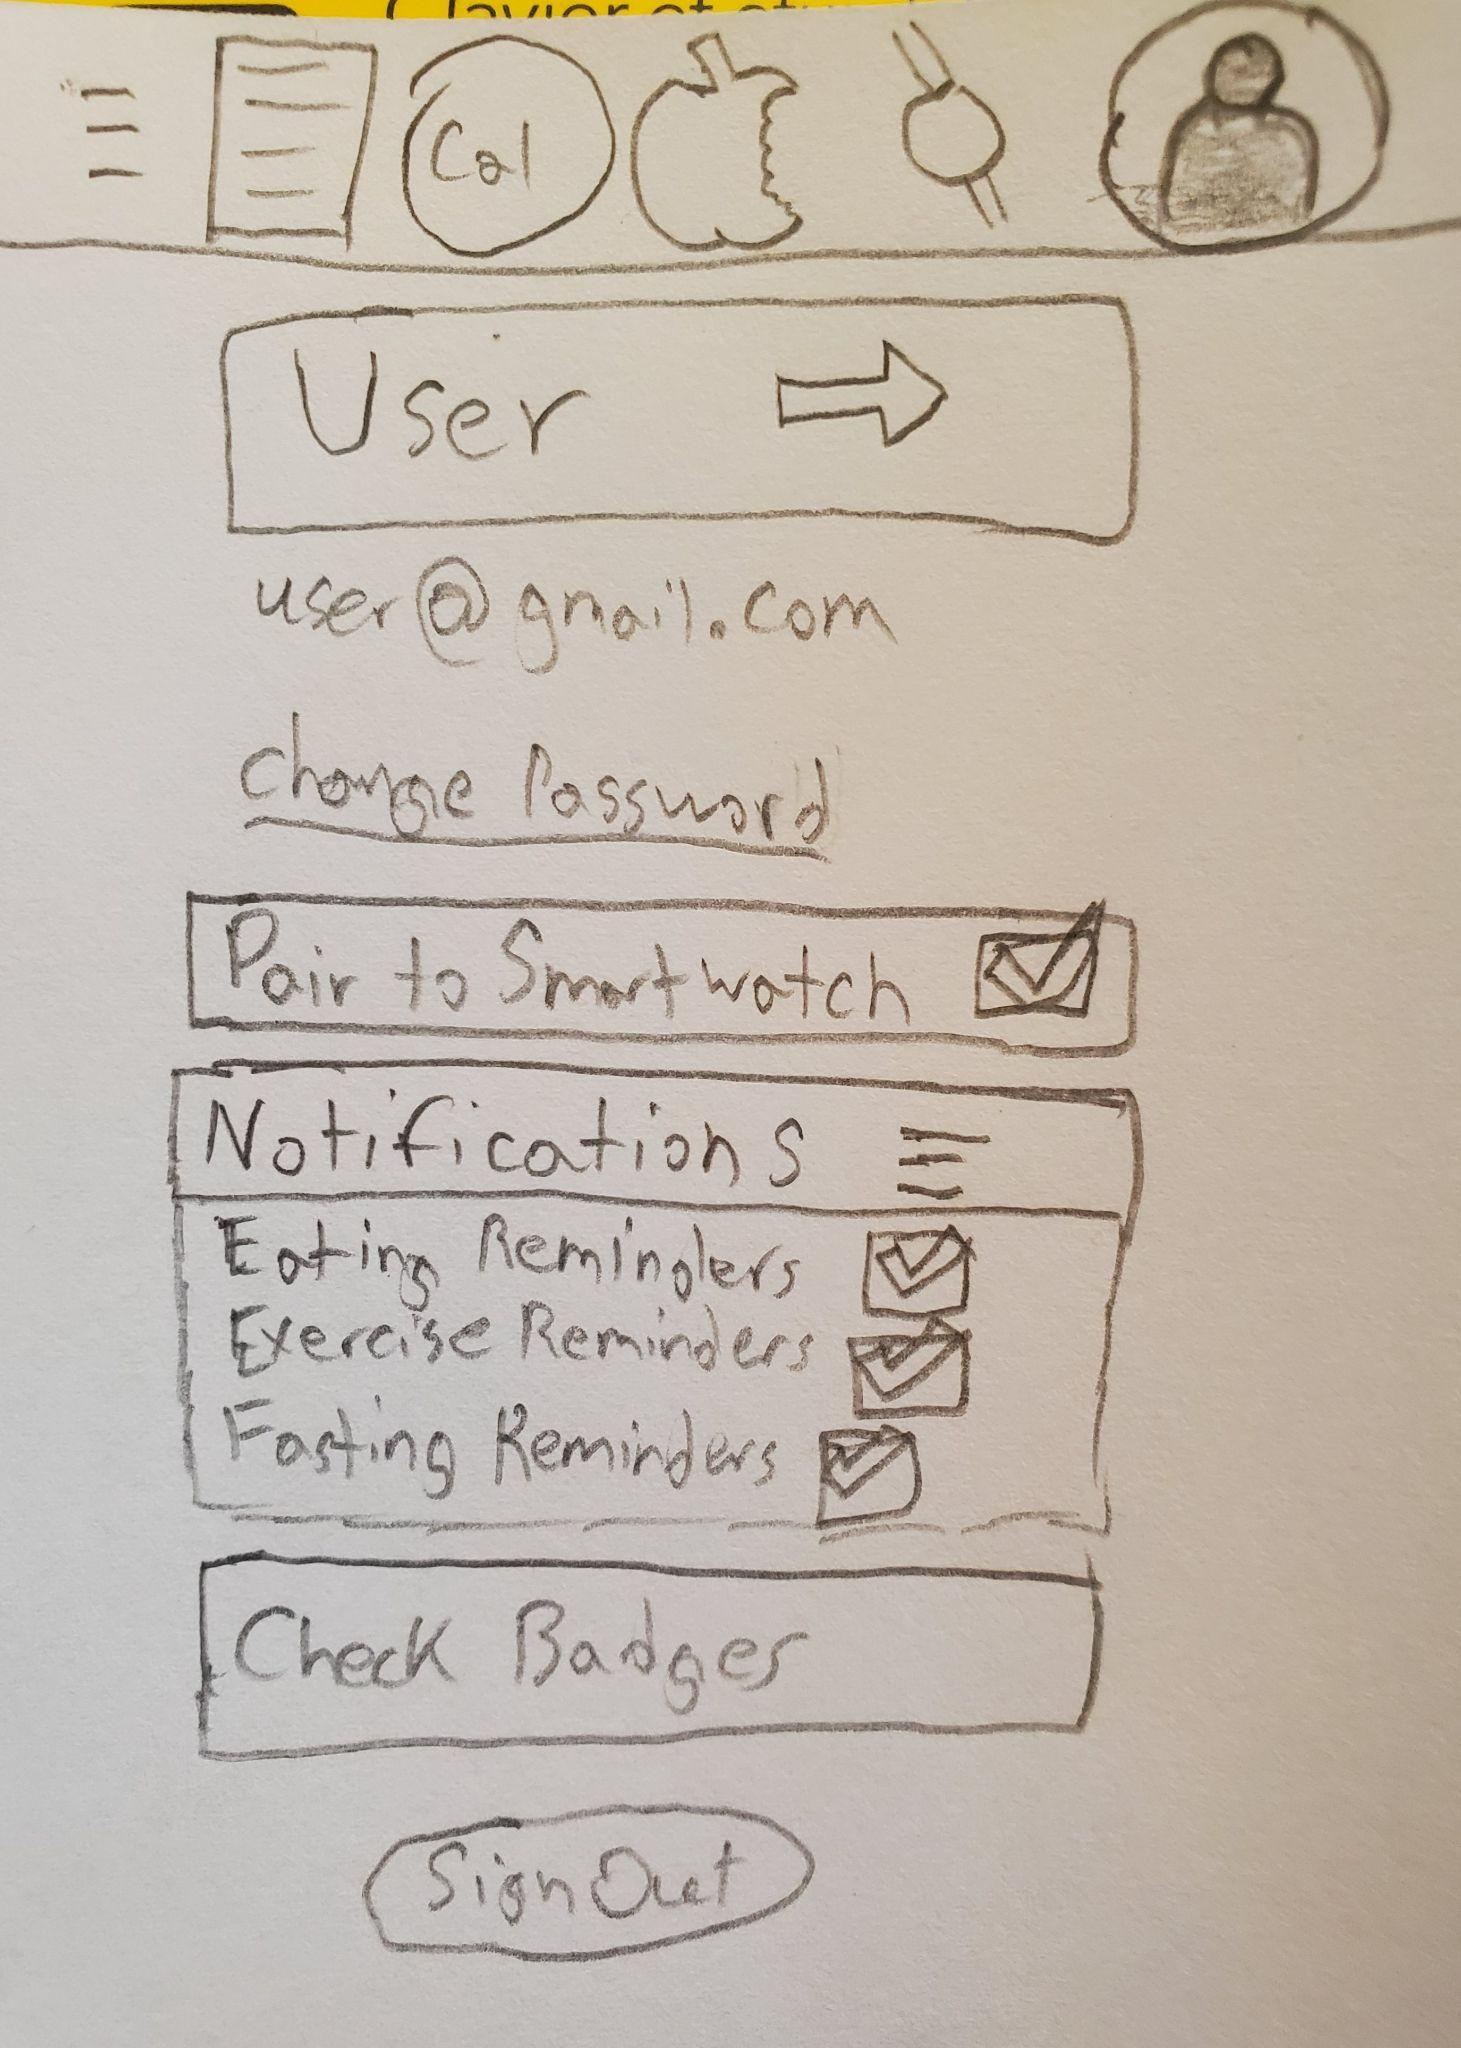 Cal
User
user@gmail.com
change Password
Pair to Smartwatch
Notifications
Eating Reminders
Exercise Reminders
Fasting Reminders
Check Badges
Sign Out